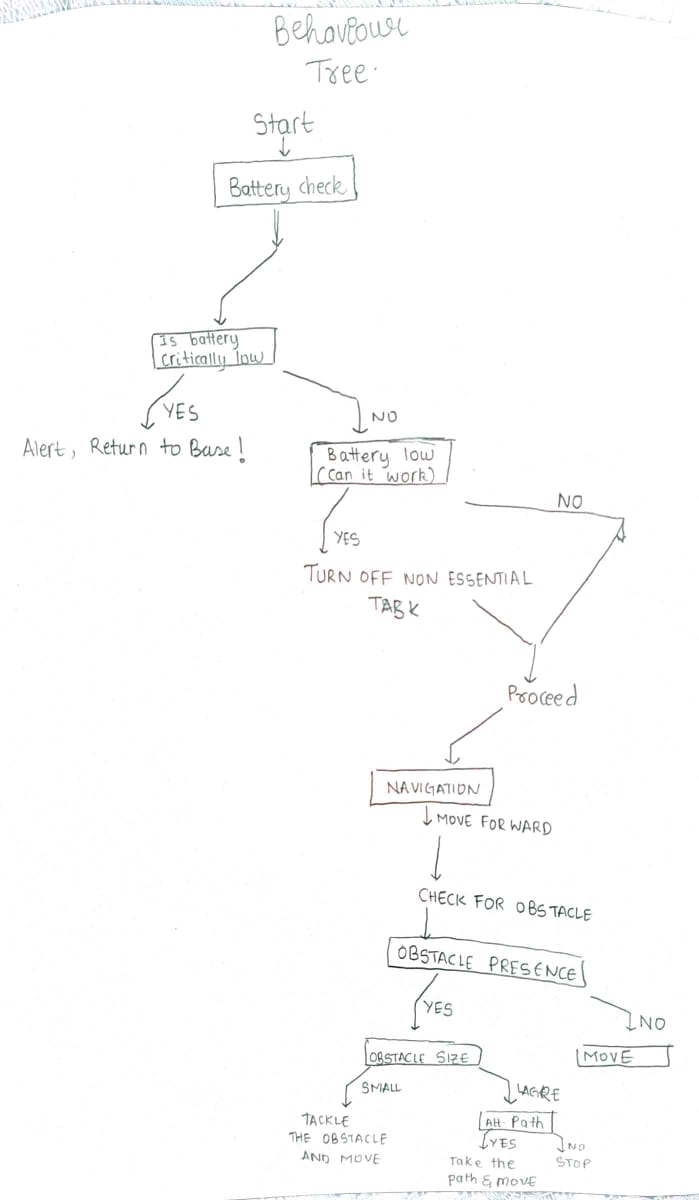 Behaviour
Tree.
Start
Battery check
Is battery
critically low
YES
NO
Alert, Return to Base!
Battery low
(can it work)
NO
YES
TURN OFF NON ESSENTIAL
TASK
Proceed
NAVIGATION
MOVE FORWARD
CHECK FOR OBSTACLE
OBSTACLE PRESENCE
YES
NO
OBSTACLE SIZE
MOVE
SMALL
LAGRE
TACKLE
THE OBSTACLE
AND MOVE
Alt. Path
YES
NO
Take the
path & MOVE
STOP